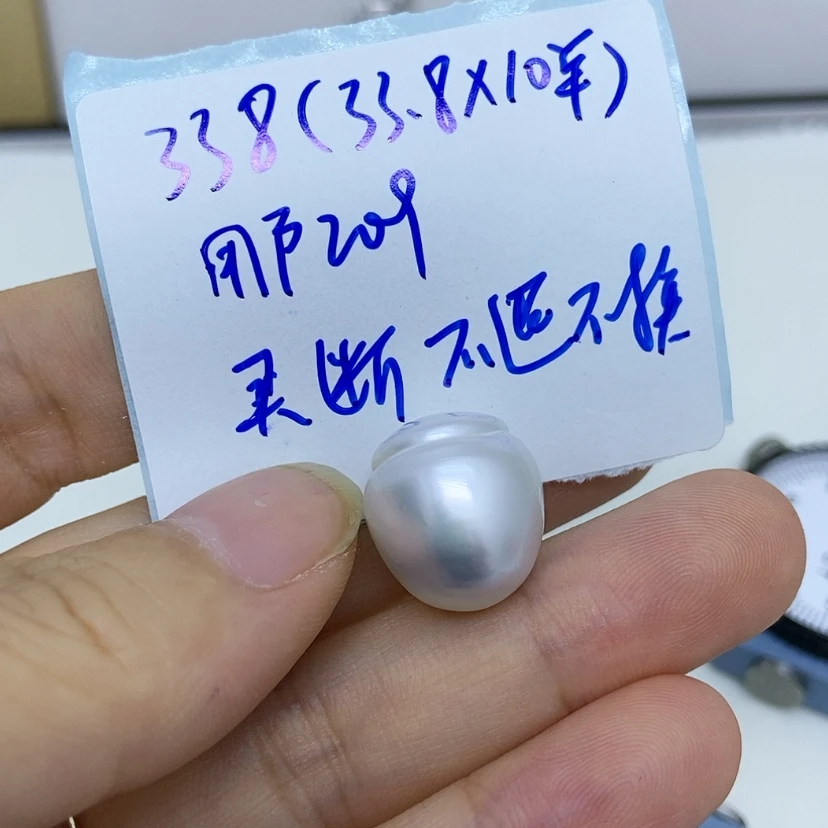 338(33.8×10年)
用户209
买断不退不换